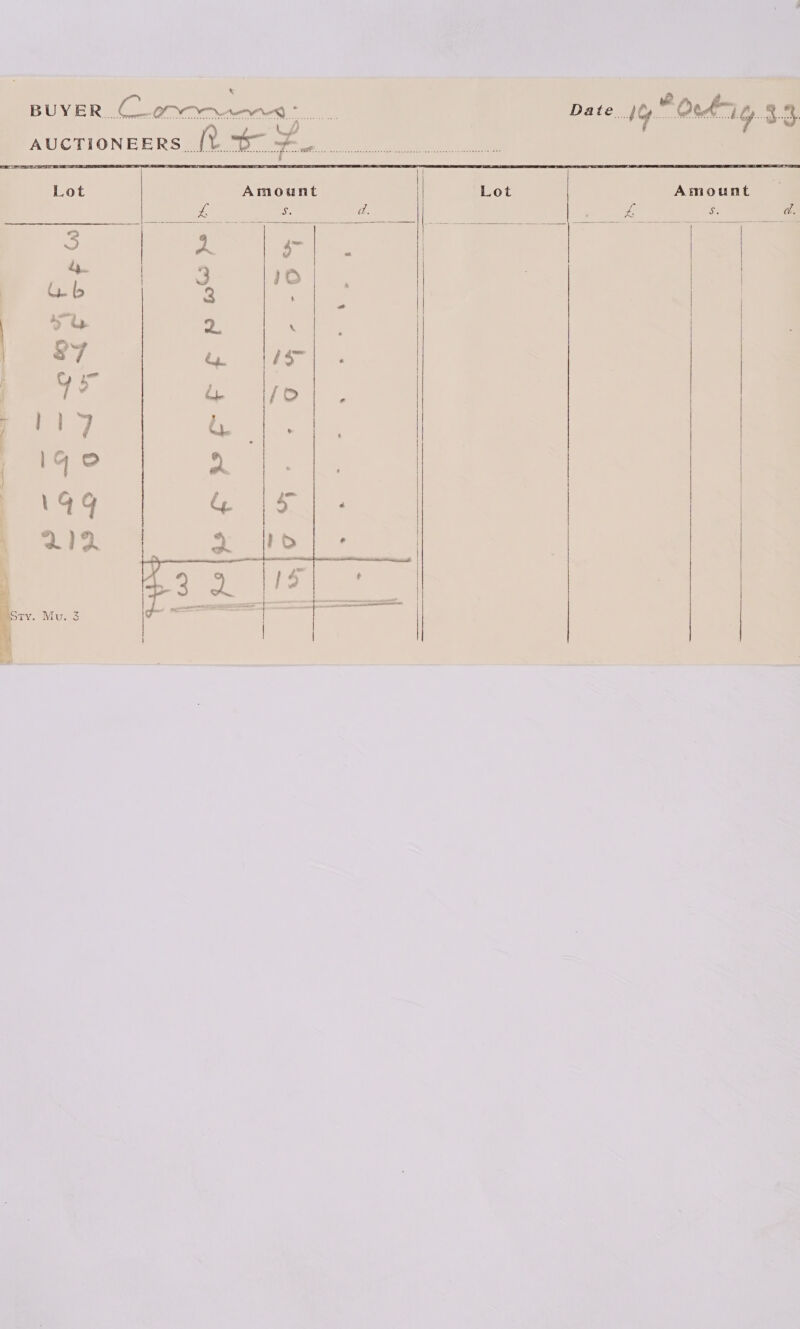 BUYER Date 19th Oct 1933
AUCTIONEERS
Lot Amount Lot Amount
£ s. d. £ s. d.
3 2 5 -
4 3 10 .
46 3 . .
54 2 . .
87 4 15 .
95 4 10 .
117 4 . .
190 2 . .
199 4 5 .
212 2 10 .
£32 15 .
Sty. Mu. 3